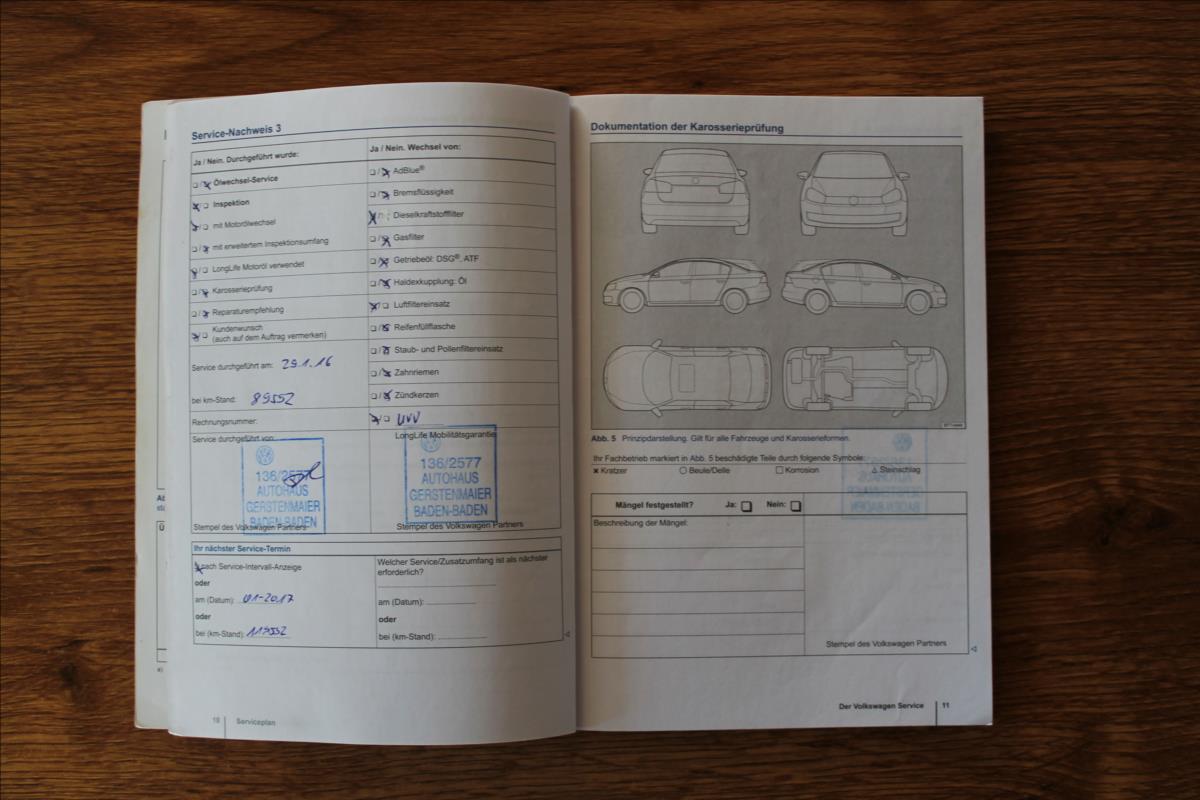 Service-Nachweis 3
Ja / Nein. Durchgeführt wurde:
Ölwechsel-Service
Inspektion
mit Motorölwechsel
mit erweitertem Inspektionsumfang
LongLife Motoröl verwendet
Karosserieprüfung
Reparaturempfehlung
Kundenwunsch
(auch auf dem Auftrag vermerken)
Service durchgeführt am: 29.1.16
bei km-Stand: 89552
Rechnungsnummer:
Service durchgeführt von:
136/2577
AUTOHAUS
GERSTENMAIER
BADEN-BADEN
Stempel des Volkswagen Partners
Ja / Nein. Wechsel von:
AdBlue®
Bremsflüssigkeit
Dieselkraftstofffilter
Gasfilter
Getriebeöl: DSG®, ATF
Haldexkupplung: Öl
Luftfiltereinsatz
Reifenfüllflasche
Staub- und Pollenfiltereinsatz
Zahnriemen
Zündkerzen
UVV
LongLife Mobilitätsgarantie
136/2577
AUTOHAUS
GERSTENMAIER
BADEN-BADEN
Stempel des Volkswagen Partners
Ihr nächster Service-Termin
nach Service-Intervall-Anzeige
oder
am (Datum): 01-2017
oder
bei (km-Stand): 119552
Welcher Service/Zusatzumfang ist als nächster
erforderlich?
am (Datum):
oder
bei (km-Stand):
10 Serviceplan
Dokumentation der Karosserieprüfung
Abb. 5 Prinzipdarstellung. Gilt für alle Fahrzeuge und Karosserieformen.
Ihr Fachbetrieb markiert in Abb. 5 beschädigte Teile durch folgende Symbole:
Kratzer Beule/Delle Korrosion Steinschlag
Mängel festgestellt? Ja: Nein:
Beschreibung der Mängel:
Stempel des Volkswagen Partners
Der Volkswagen Service 11